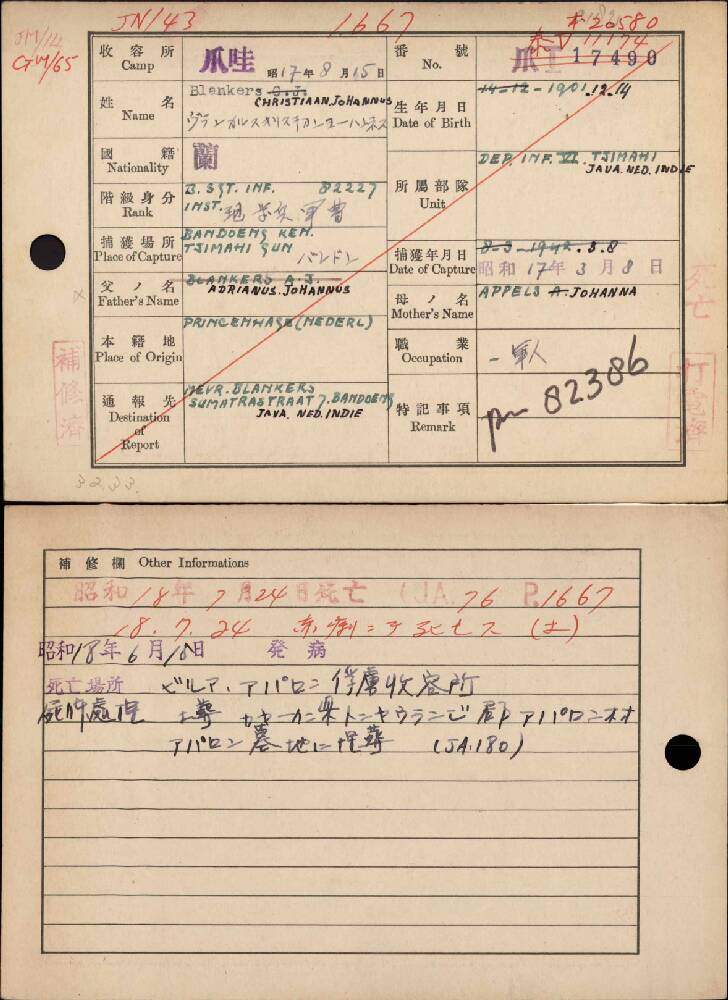 JN/143
1667
ホ20580
JM/14
GM/65
泰V 11174
收容所 Camp 爪哇 昭17年8月15日
番號 No. 爪I 17490
姓名 Name Blankers C.J.
CHRISTIAAN, JOHANNUS
生年月日 Date of Birth 14-12-1901.12.14
國籍 Nationality 蘭
所屬部隊 Unit DEP. INF. VI. TJIMAHI
JAVA. NED. INDIE
階級身分 Rank B. SGT. INF. 82227
INST.
捕獲場所 Place of Capture BANDOENG KEN.
TSIMAHI GUN バンドン
捕獲年月日 Date of Capture 8-3-1942.3.8
昭和17年3月8日
父ノ名 Father's Name BLANKERS A.J.
ADRIANUS. JOHANNUS
母ノ名 Mother's Name APPELS A. JOHANNA
本籍地 Place of Origin PRINCENHAGE (NEDERL)
職業 Occupation 軍人
通報先 Destination of Report MEVR. BLANKERS
SUMATRASTRAAT 7. BANDOENG
JAVA. NED. INDIE
特記事項 Remark
82386
補修濟
死亡
打電濟
3233
補修欄 Other Informations
昭和18年7月24日死亡 (JA.76 P.1667
18.7.24
昭和18年6月18日 発病
死亡場所 ビルア、アパロン俘虜收容所
アパロン墓地に埋葬 (JA.180)